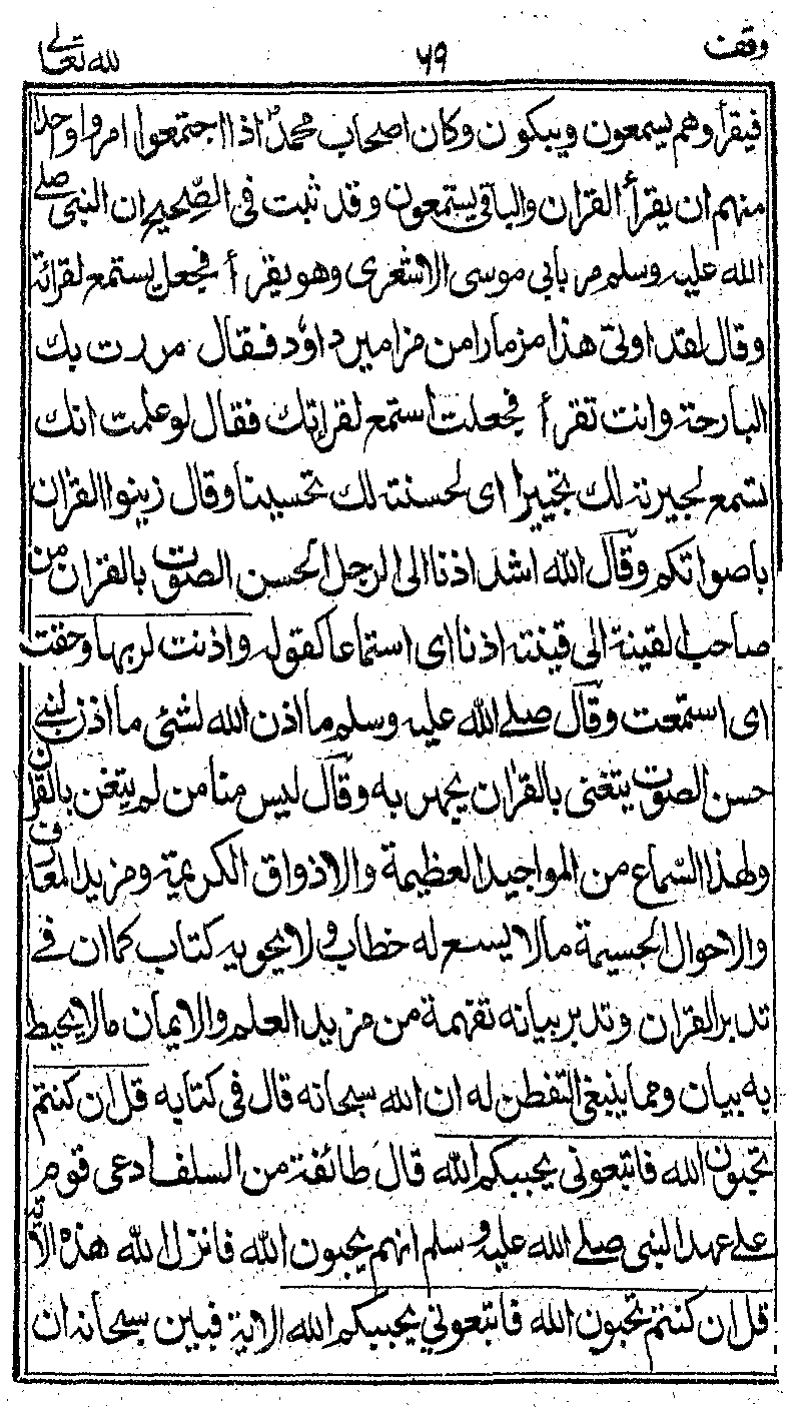 وقف ٦٩ لله تعالى
فيقرأ وهم يسمعون ويبكون وكان اصحاب محمدؐ اذا اجتمعوا امروا واحدا
منهم ان يقرأ القران والباقى يستمعون وقد ثبت فى الصحيح ان النبى صلے
الله عليه وسلم مر بابى موسى الاشعرى وهو يقرأ فجعل يستمع لقرائته
وقال لقد اوتى هذا مزمارا من مزامير داود فقال مررت بك
البارحة وانت تقرأ فجعلت استمع لقراتك فقال لو علمت انك
تسمع لحبرته لك تحبيرا اى لحسنته لك تحسينا وقال زينوا القران
باصواتكم وقال الله اشد اذنا الى الرجل الحسن الصوت بالقران من
صاحب القينة الى قينته اذنا اى استماعا كقوله واذنت لربها وحقت
اى استمعت وقال صلے الله عليه وسلم ما اذن الله لشئى ما اذن لنبے
حسن الصوت يتغنى بالقران يجهر به وقال ليس منا من لم يتغن بالقران
ولهذا السماع من المواجيد العظيمة والاذواق الكريمة ومزيد المعارف
والاحوال الجسيمة مالا يسع له خطاب ولا يحويه كتاب كما ان فے
تدبر القران وتدبر بيانه تفهمة من مزيد العلم والايمان مالا يحيط
به بيان ومما ينبغى التفطن له ان الله سبحانه قال فى كتابه قل ان كنتم
تحبون الله فاتبعونى يحببكم الله قال طائفة من السلف ادعى قوم
علے عهد النبى صلے الله عليه وسلم انهم يحبون الله فانزل الله هذه الاية
قل ان كنتم تحبون الله فاتبعوني يحببكم الله الاية فبين سبحانه ان